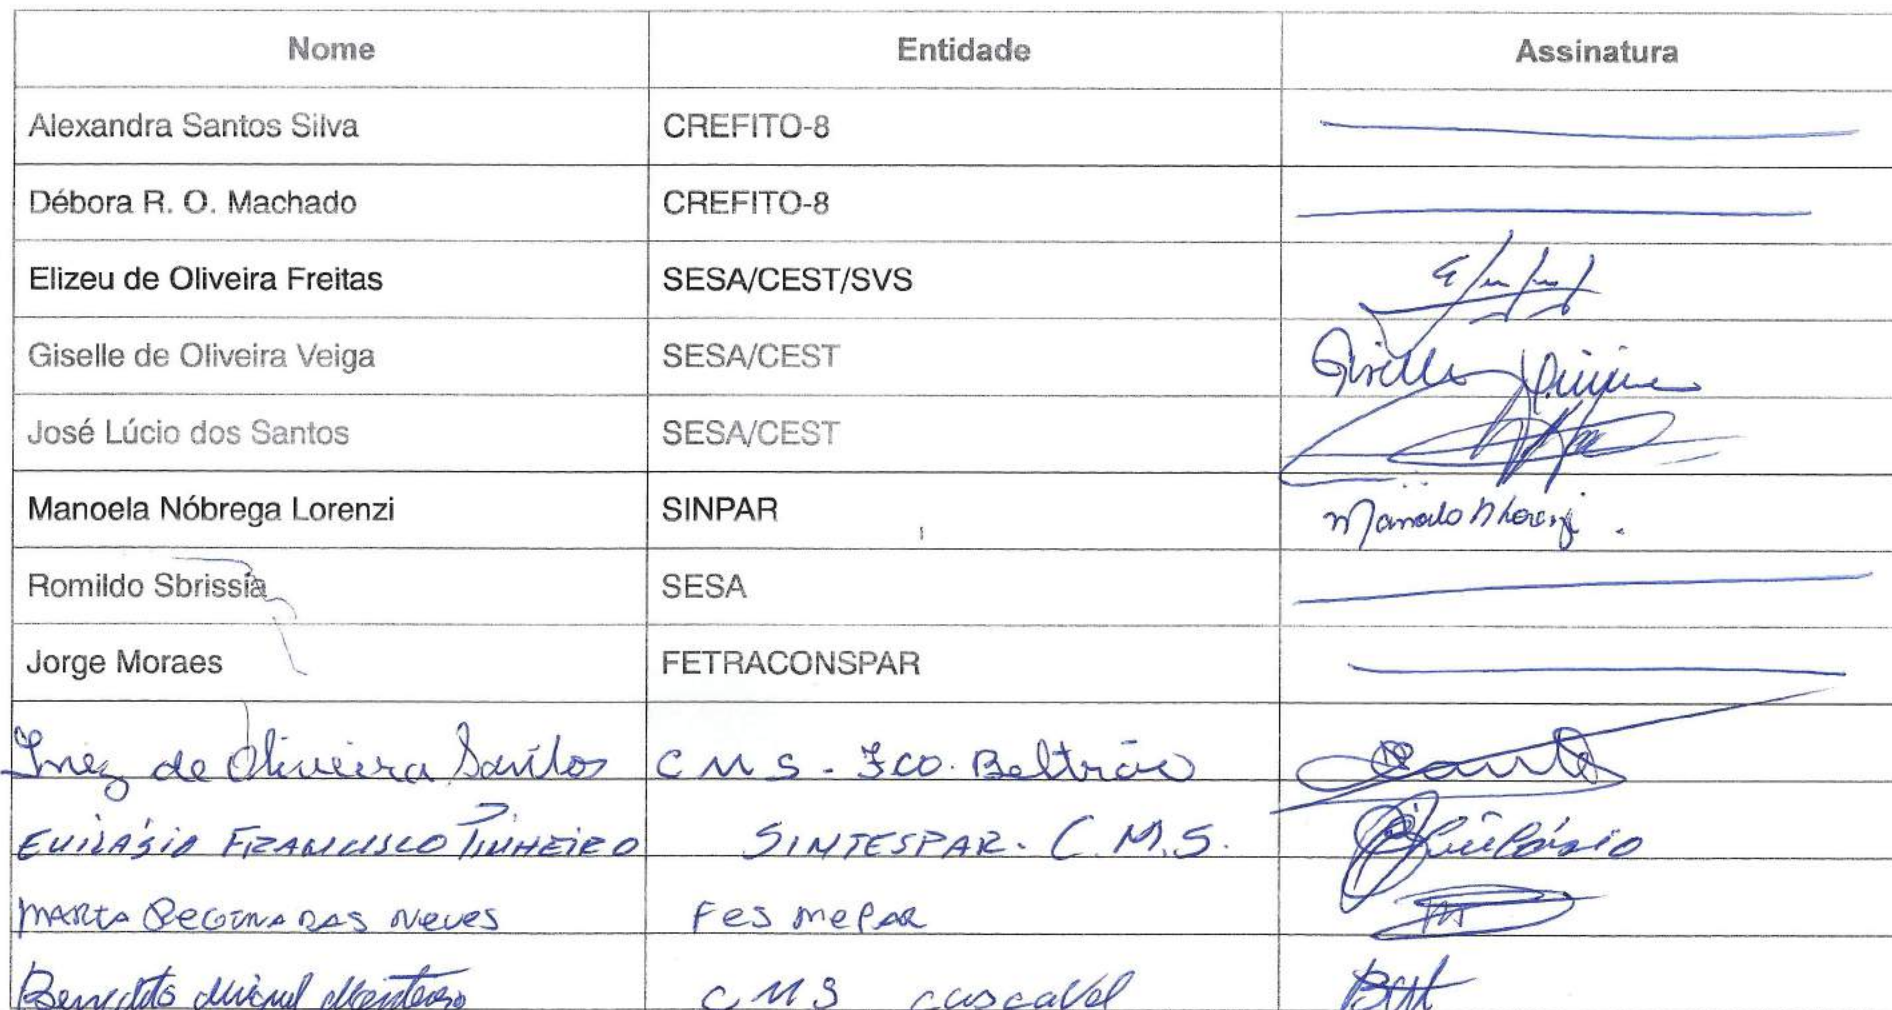 Nome Entidade Assinatura
Alexandra Santos Silva CREFITO-8
Débora R. O. Machado CREFITO-8
Elizeu de Oliveira Freitas SESA/CEST/SVS
Giselle de Oliveira Veiga SESA/CEST Giselle
José Lúcio dos Santos SESA/CEST
Manoela Nóbrega Lorenzi SINPAR
Romildo Sbrissia SESA
Jorge Moraes FETRACONSPAR
Inez de Oliveira Santos CMS - Fco. Beltrão
EUILÁSIO FRANCISCO PINHEIRO SINTESPAR - C.M.S.
MARTA REGINA DAS NEVES FesmePAR
Benedito CMS cascavel